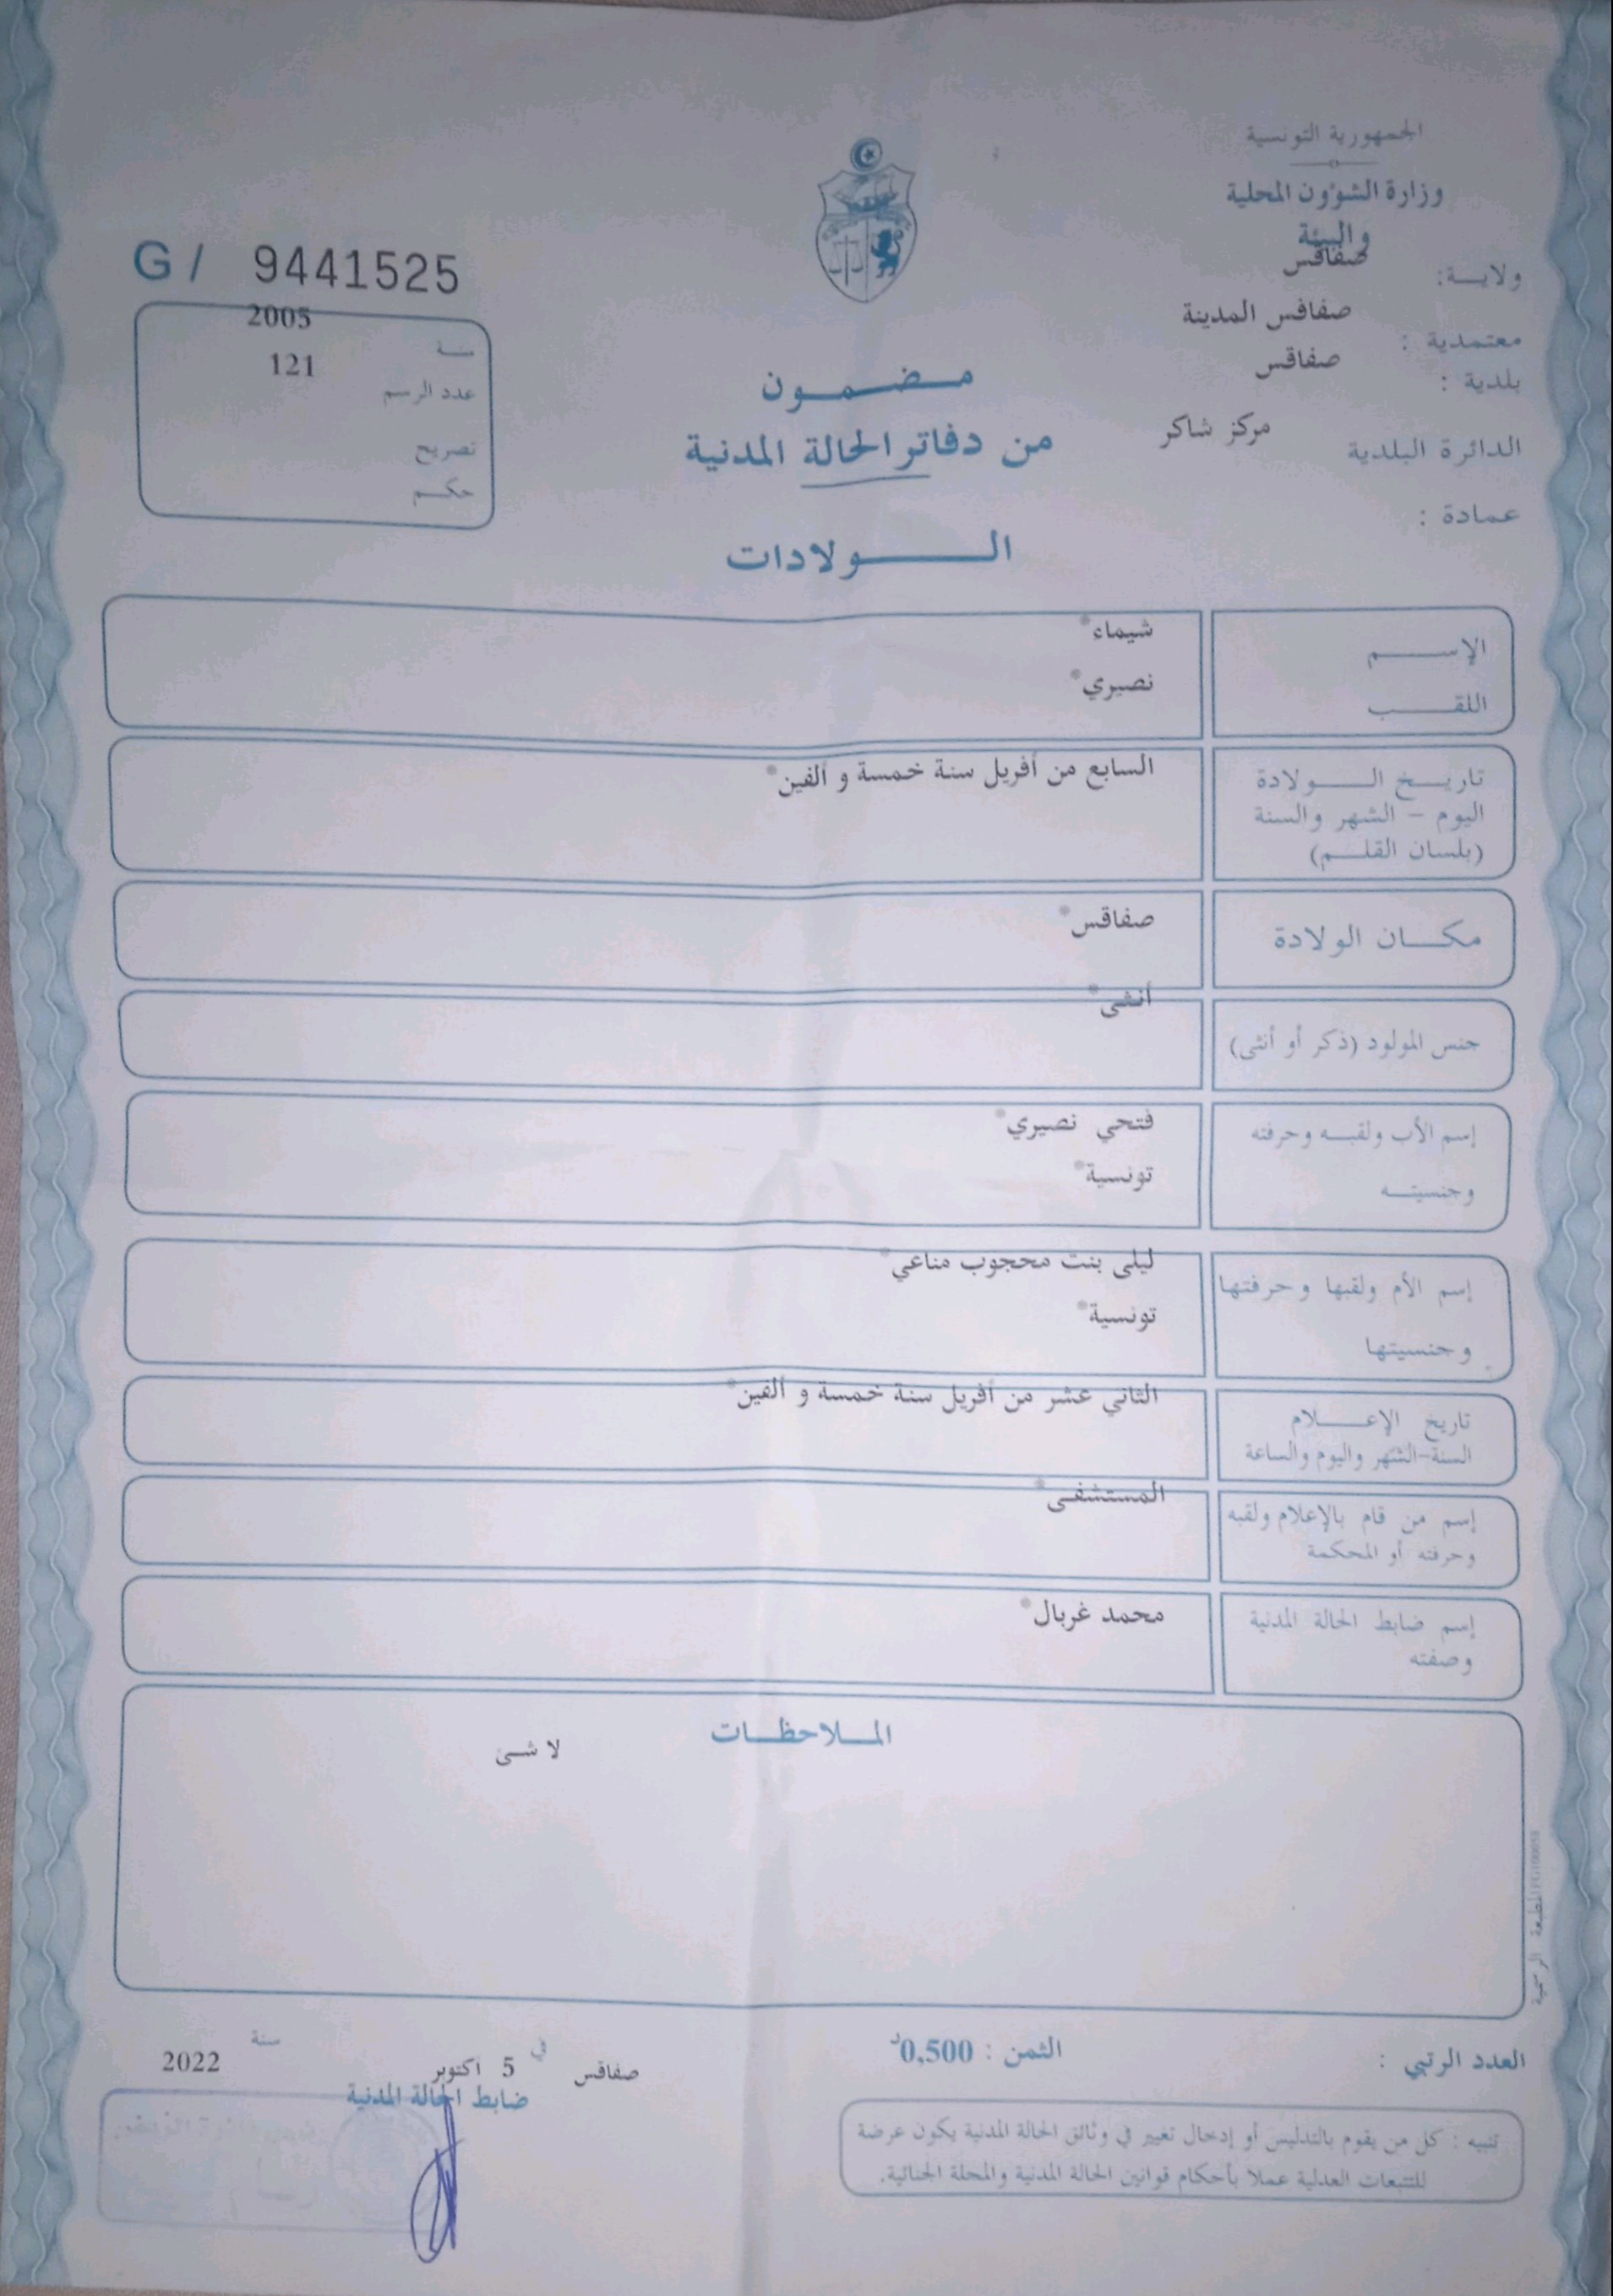 الجمهورية التونسية
وزارة الشؤون المحلية
والبيئة
ولايـــة: صفاقس
معتمدية : صفاقس المدينة
بلدية : صفاقس
الدائرة البلدية مركز شاكر
عمادة :
G / 9441525
سنــة 2005
عدد الرسم 121
تصريح
حكــم
مــضــمــون
من دفاتر الحالة المدنية
الـــــولادات
الإســـــم شيماء
اللقـــــب نصيري
تاريــخ الــــولادة السابع من أفريل سنة خمسة و ألفين
اليوم – الشهر والسنة
(بلسان القلــم)
مكـــان الولادة صفاقس
جنس المولود (ذكر أو أنثى) أنثى
إسم الأب ولقبــه وحرفته فتحي نصيري
وجنسيتــه تونسية
إسم الأم ولقبها وحرفتها ليلى بنت محجوب مناعي
وجنسيتها تونسية
تاريخ الإعــــلام الثاني عشر من أفريل سنة خمسة و ألفين
السنة–الشهر واليوم والساعة
إسم من قام بالإعلام ولقبه المستشفى
وحرفته أو المحكمة
إسم ضابط الحالة المدنية محمد غربال
وصفته
المــلاحظــات
لا شئ
العدد الرتبي :
الثمن : 0,500د
صفاقس في 5 اكتوبر سنة 2022
ضابط الحالة المدنية
تنبيه : كل من يقوم بالتدليس أو إدخال تغيير في وثائق الحالة المدنية يكون عرضة
للتتبعات العدلية عملا بأحكام قوانين الحالة المدنية والمجلة الجنائية.
المطبعة الرسمية